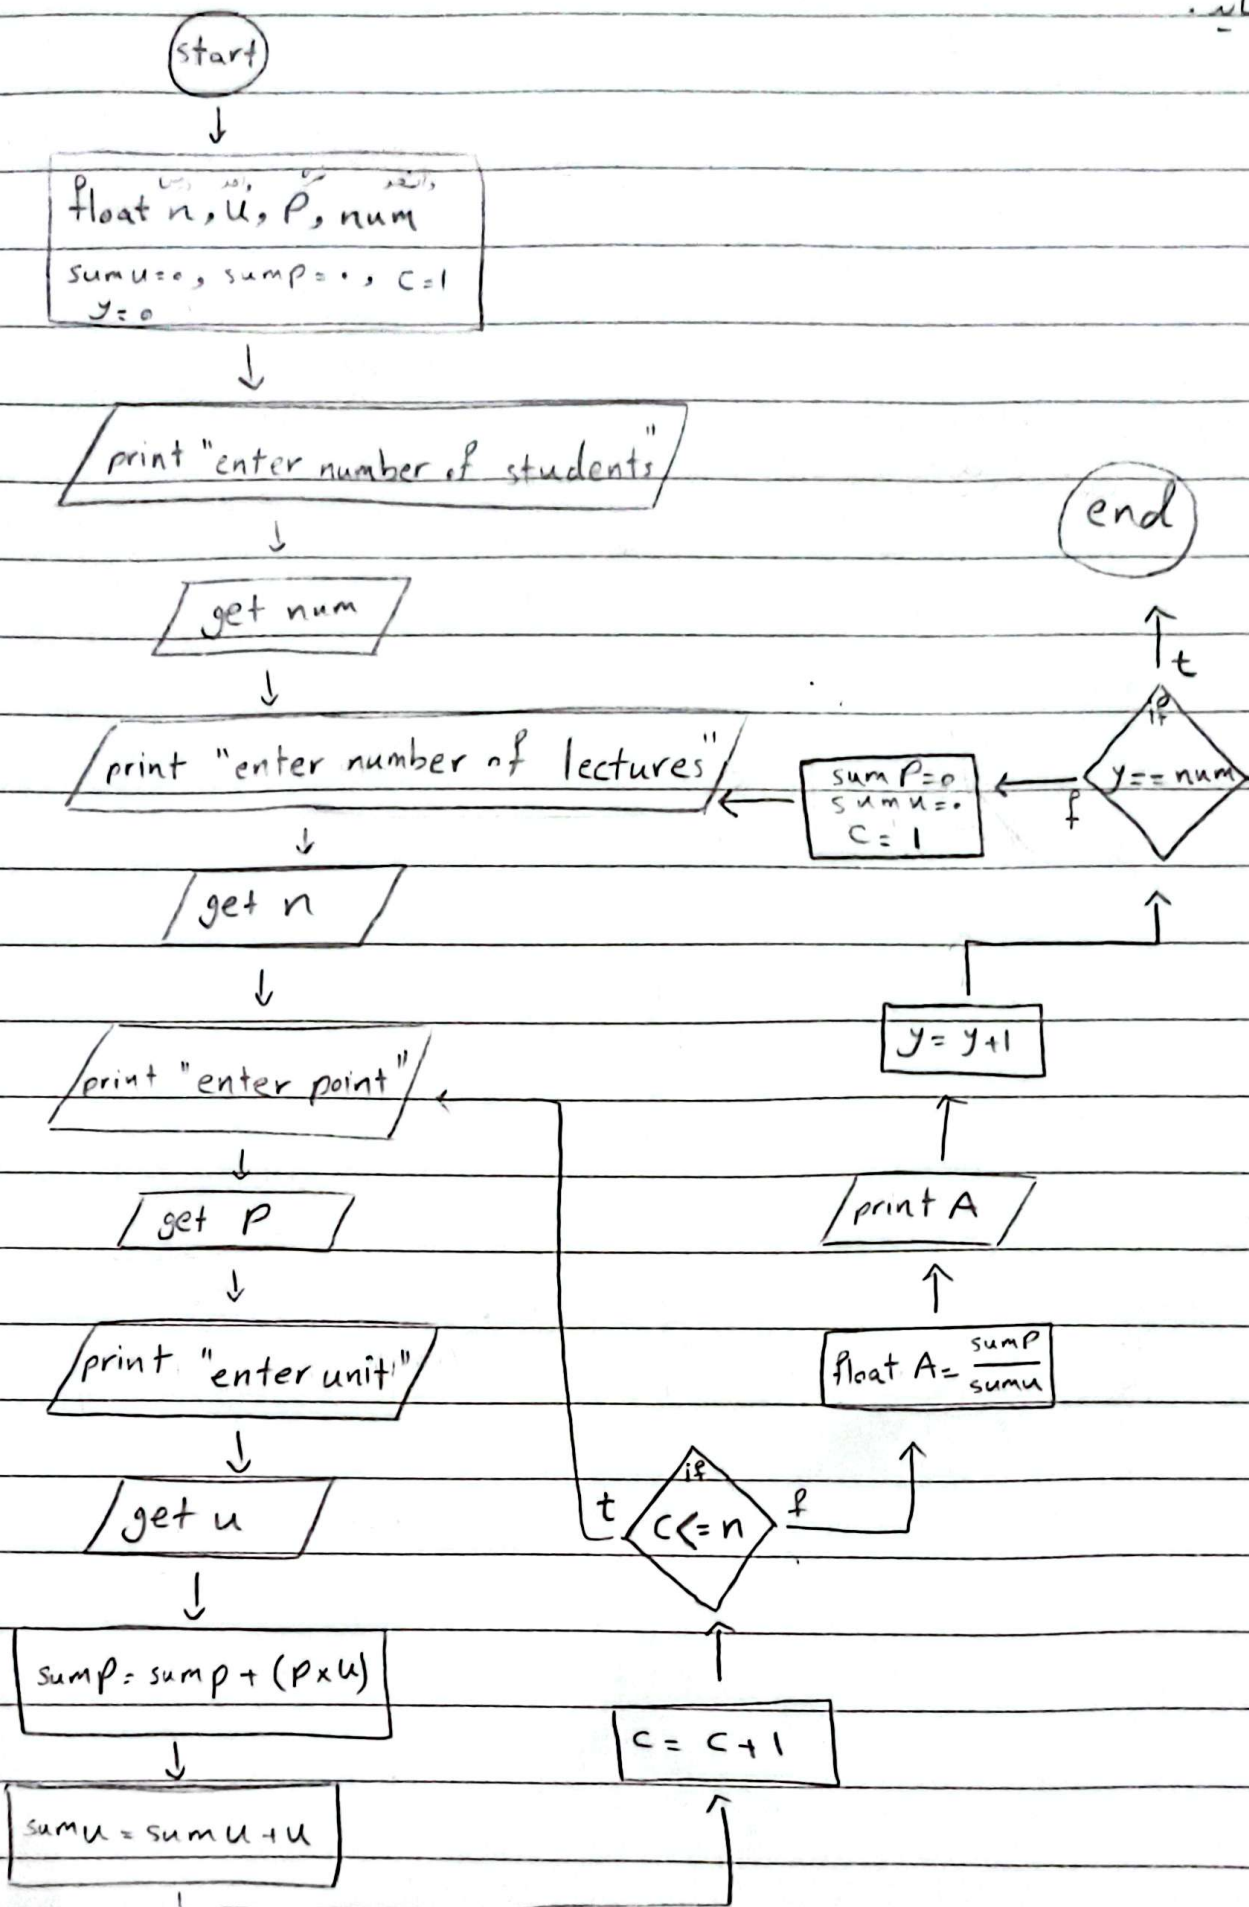 start
درس واحد نمره دانشجو
float n, u, P, num
sumu=0, sump=0, c=1
y=0
print "enter number of students"
get num
print "enter number of lectures"
get n
print "enter point"
get P
print "enter unit"
get u
sump= sump + (p×u)
sumu = sumu + u
c= c+1
if
c<=n
t
f
float A= sump/sumu
print A
y= y+1
if
y==num
f
t
sump=0
sumu=0
c= 1
end